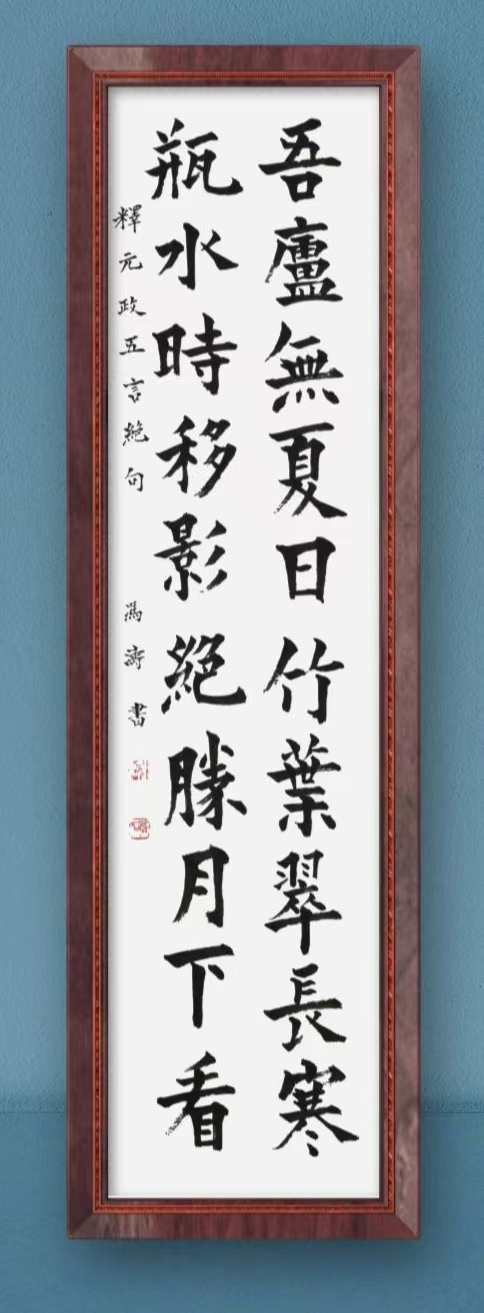 吾廬無夏日竹葉翠長寒
瓶水時移影絕勝月下看
釋元政五言絕句 馮濤書